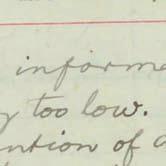 informa
y too low.
ention of a